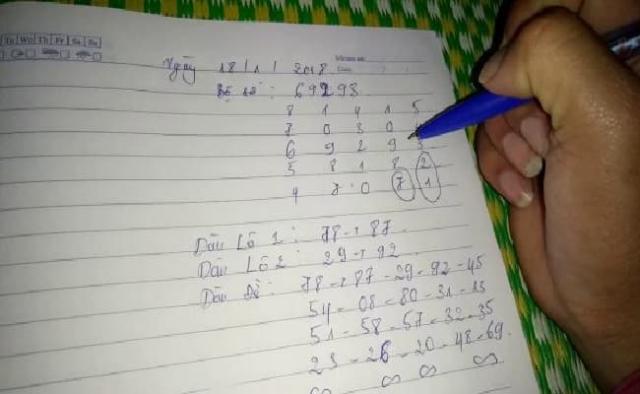 Tu We Th Fr Sa Su
Ngày 18/1/2018
Bộ số: 69293
8 1 4 1 5
7 0 3 0 4
6 9 2 9 3
5 8 1 8 2
4 7 0 7 1
Dàn Lô 1: 78 - 87
Dàn Lô 2: 29 - 92
Dàn Đề: 78 - 87 - 29 - 92 - 45
54 - 08 - 80 - 31 - 13
51 - 58 - 57 - 32 - 35
23 - 26 - 20 - 48 - 69.